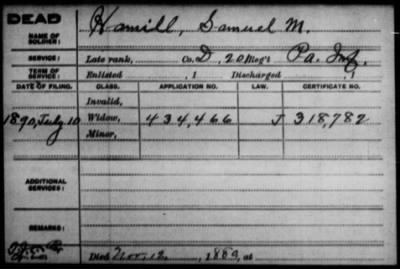 DEAD
NAME OF SOLDIER: Hamill, Samuel M.
SERVICE: Late rank, Co. D, 20 Reg't Pa. Inf.
TERM OF SERVICE: Enlisted , 1 Discharged , 1
DATE OF FILING. CLASS. APPLICATION NO. LAW. CERTIFICATE NO.
Invalid,
1890, July 10 Widow, 434,466 J 318,782
Minor,
ADDITIONAL SERVICES:
REMARKS:
Died Nov. 12, 1889, at